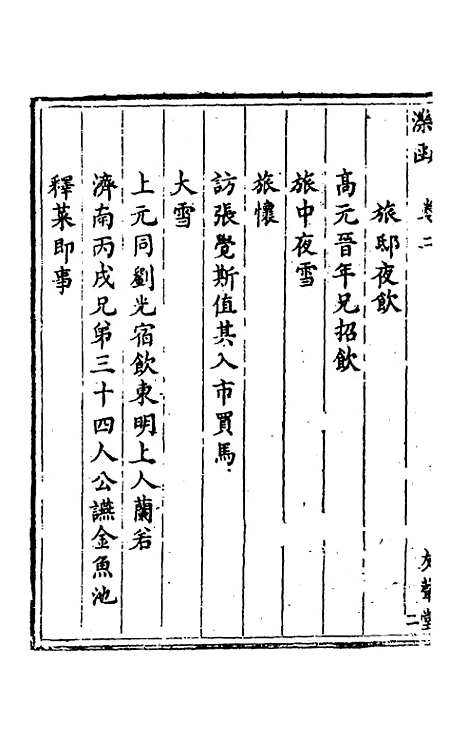 濼函 卷二
旅邸夜飲
高元晉年兄招飲
旅中夜雪
旅懷
訪張覺斯值其入市買馬
大雪
上元同劉光宿飲東明上人蘭若
濟南丙戌兄弟三十四人公讌金魚池
釋菜即事
二